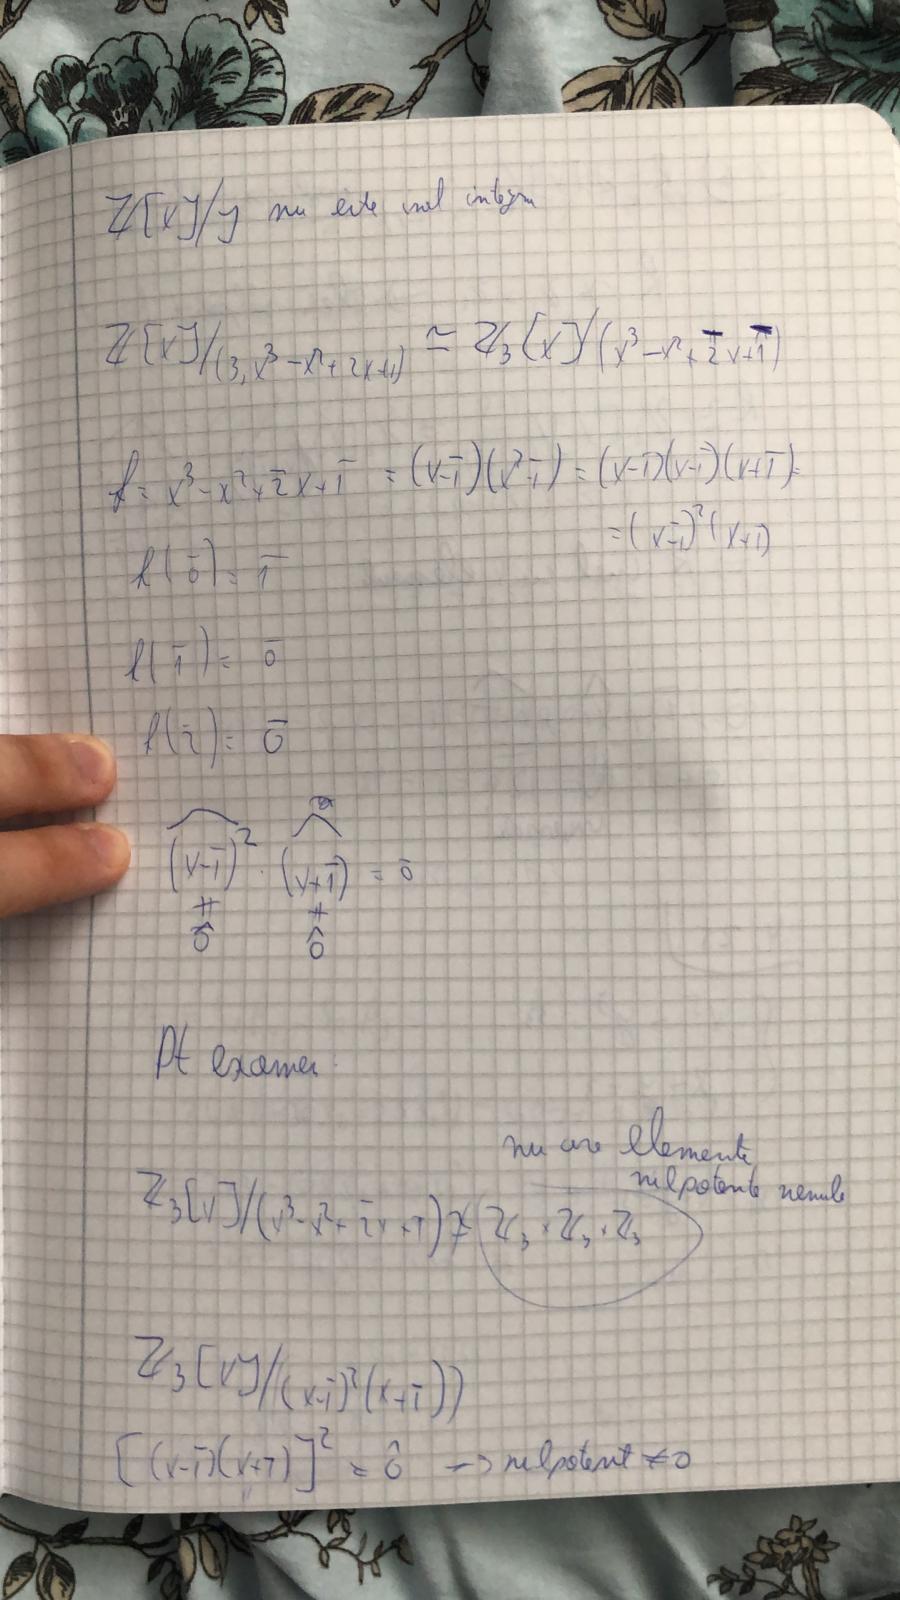 Z[x]/J nu este inel integru
Z[x]/(3, x³-x²+2x+1) ≃ Z₃[x]/(x³-x²+2̄x+1̄)
f = x³-x²+2̄x+1̄ = (x-1̄)(x²-1̄) = (x-1̄)(x-1̄)(x+1̄) =
= (x-1̄)²(x+1̄)
f(0̄) = 1̄
f(1̄) = 0̄
f(2̄) = 0̄
(x-1̄)² · (x+1̄) = 0̄
≠ ≠
0̂ 0̂
Pt examen
nu are elemente
nilpotente nenule
Z₃[x]/(x³-x²+2̄x+1̄) ≄ Z₃ × Z₃ × Z₃
Z₃[x]/((x-1̄)²(x+1̄))
[(x-1̄)(x+1̄)]² = 0̂ → nilpotent ≠ 0